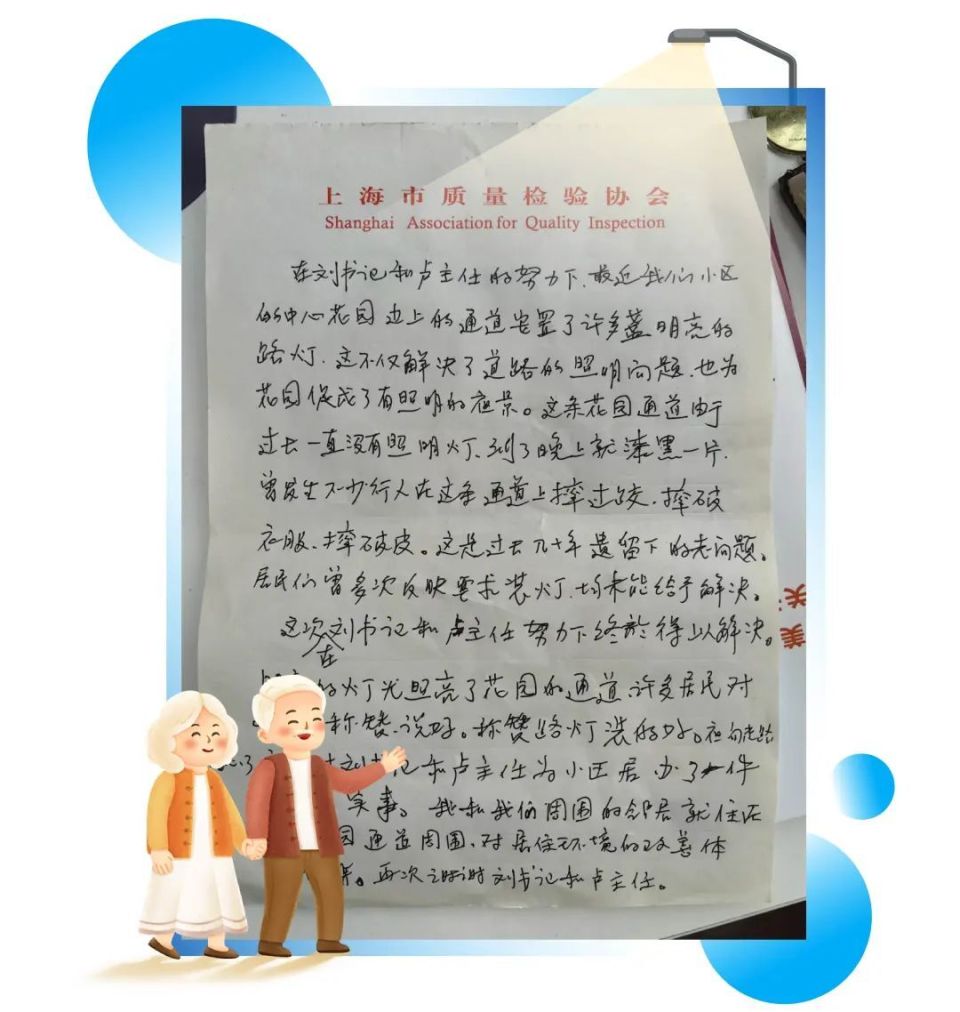 上海市质量检验协会
Shanghai Association for Quality Inspection
在刘书记和卢主任的努力下.最近我们小区
的中心花园边上的通道安置了许多盏明亮的
路灯.这不仅解决了道路的照明问题.也为
花园促成了有照明的夜景。这条花园通道由于
过去一直没有照明灯.到了晚上就漆黑一片.
曾发生不少行人在这条通道上摔过跤.摔破
衣服.摔破皮。这是过去几十年遗留下的老问题。
居民们曾多次反映要求装灯.均未能给予解决。
这次在刘书记和卢主任努力下终於得以解决。
的灯光照亮了花园的通道.许多居民对
称赞.说好。称赞路灯装的好。夜间走路
刘书记和卢主任为小区居办了一件
实事。我和我们周围的邻居就住在
园通道周围.对居住环境的改善体
再次谢谢刘书记和卢主任。
关
美